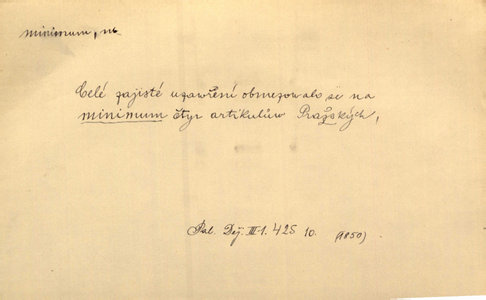 minimum, nt
Celé zajisté uzawření obmezowalo se na
minimum čtyr artikulůw Pražských,
Pal. Děj. III·1. 425 10. (1850)